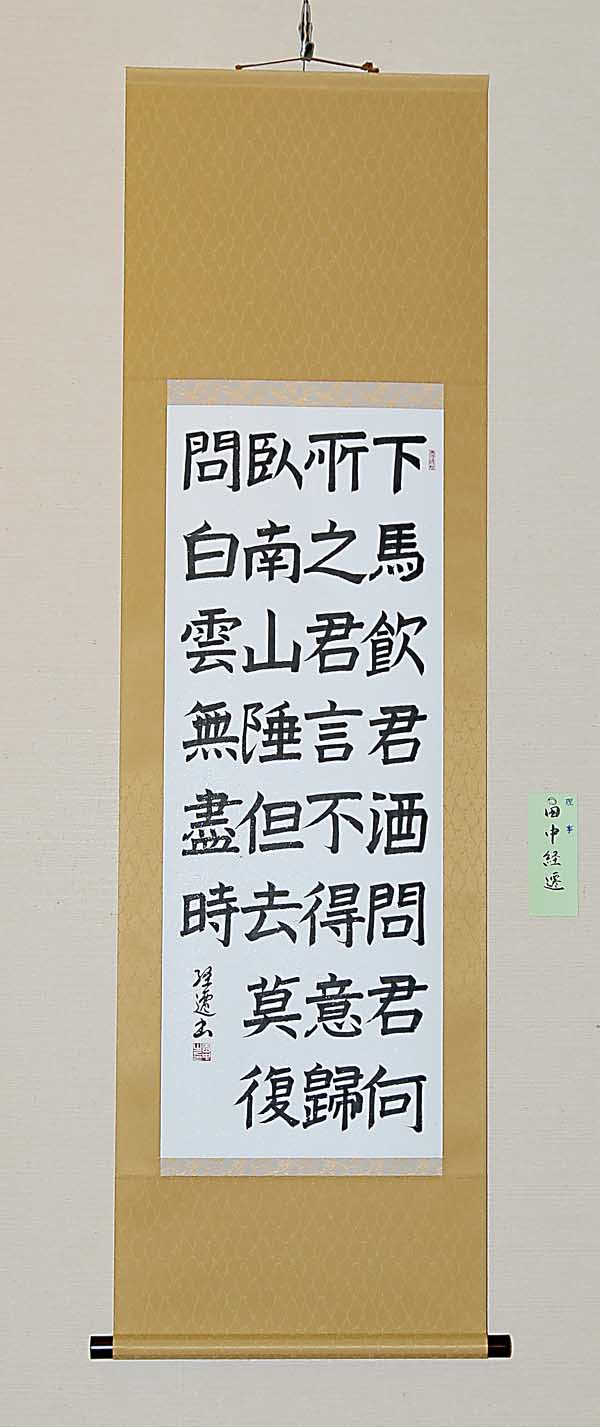 下馬飲君酒問君何
所之君言不得意歸
臥南山陲但去莫復
問白雲無盡時
経遷書
理事
田中経遷